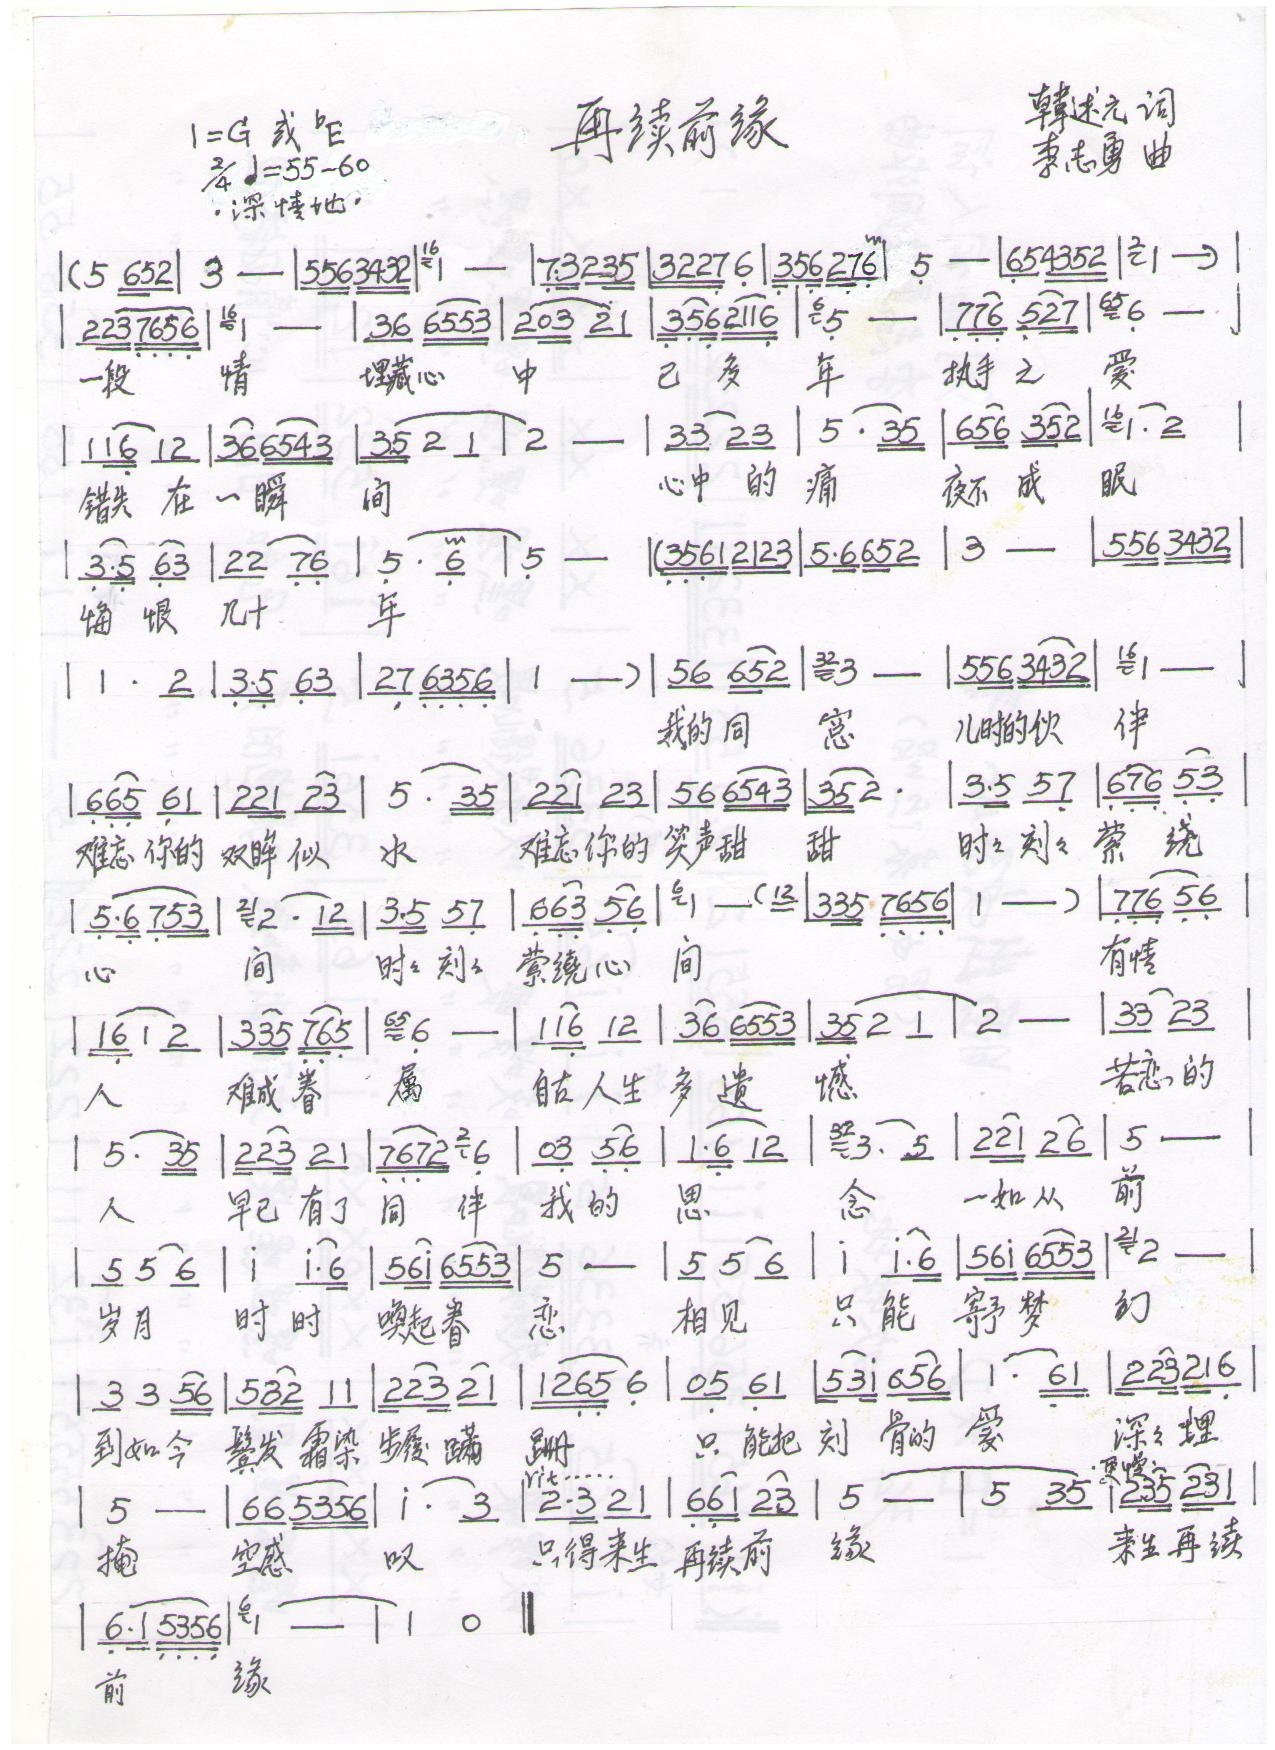 再续前缘
1=G 或 ♭E
韓述元 词
2/4 ♩=55~60
李志勇 曲
·深情地·
|(5 652| 3 — |5563432|16 1 — |7·3235|32276|356276| 5 — |654352|2 1 —)|
|2237656|16 1 — |36 6553|203 21|3562116|6 5 — |776 527|65 6 — |
一段 情 埋藏心 中 已多 年 执手之 爱
|116 12|366543|35 2 1|2 — |33 23|5 · 35|656 352|16 1 · 2|
错失在一瞬 间 心中的痛 夜不成 眠
|3·5 63|22 76|5 · 6|5 — |(35612123|5·6652|3 — |5563432|
悔恨 几十 年
|1 · 2|3·5 63|27 6356|1 —)|56 652|32 3 — |5563432|16 1 — |
我的同 窓 儿时的伙 伴
|665 61|221 23|5 · 35|221 23|566543|352 ·|3·5 57|676 53|
难忘你的 双眸似 水 难忘你的 笑声甜 甜 时々刻々 萦绕
|5·6753|21 2 · 12|3·5 57|663 56|6 1 —(12|335 7656|1 —)|776 56|
心 间 时々刻々 萦绕心 间 有情
|16 1 2|335 765|65 6 — |116 12|36 6553|35 2 1|2 — |33 23|
人 难成眷 属 自古人生 多遗 憾 苦恋的
|5 · 35|223 21|7672 2 6|03 56|1·6 12|32 3 · 5|221 26|5 — |
人 早已有了 同伴 我的 思 念 一如从 前
|5 5 6|i i·6|56i 6553|5 — |5 5 6|i i·6|56i 6553|21 2 — |
岁月 时时 唤起眷 恋 相见 只能 寄予梦 幻
|3 3 56|532 11|223 21|1265 6|05 61|53i 656|1 · 61|223216|
到如今 鬓发霜染 步履蹒 跚 只能把 刻骨的 爱 深々埋
rit...... ·更慢·
|5 — |66 5356|i · 3|2·3 21|661 23|5 — |5 35|235 231|
掩 空感 叹 只得来生 再续前 缘 来生再续
|6·1 5356|6 1 — |1 0 ‖
前 缘